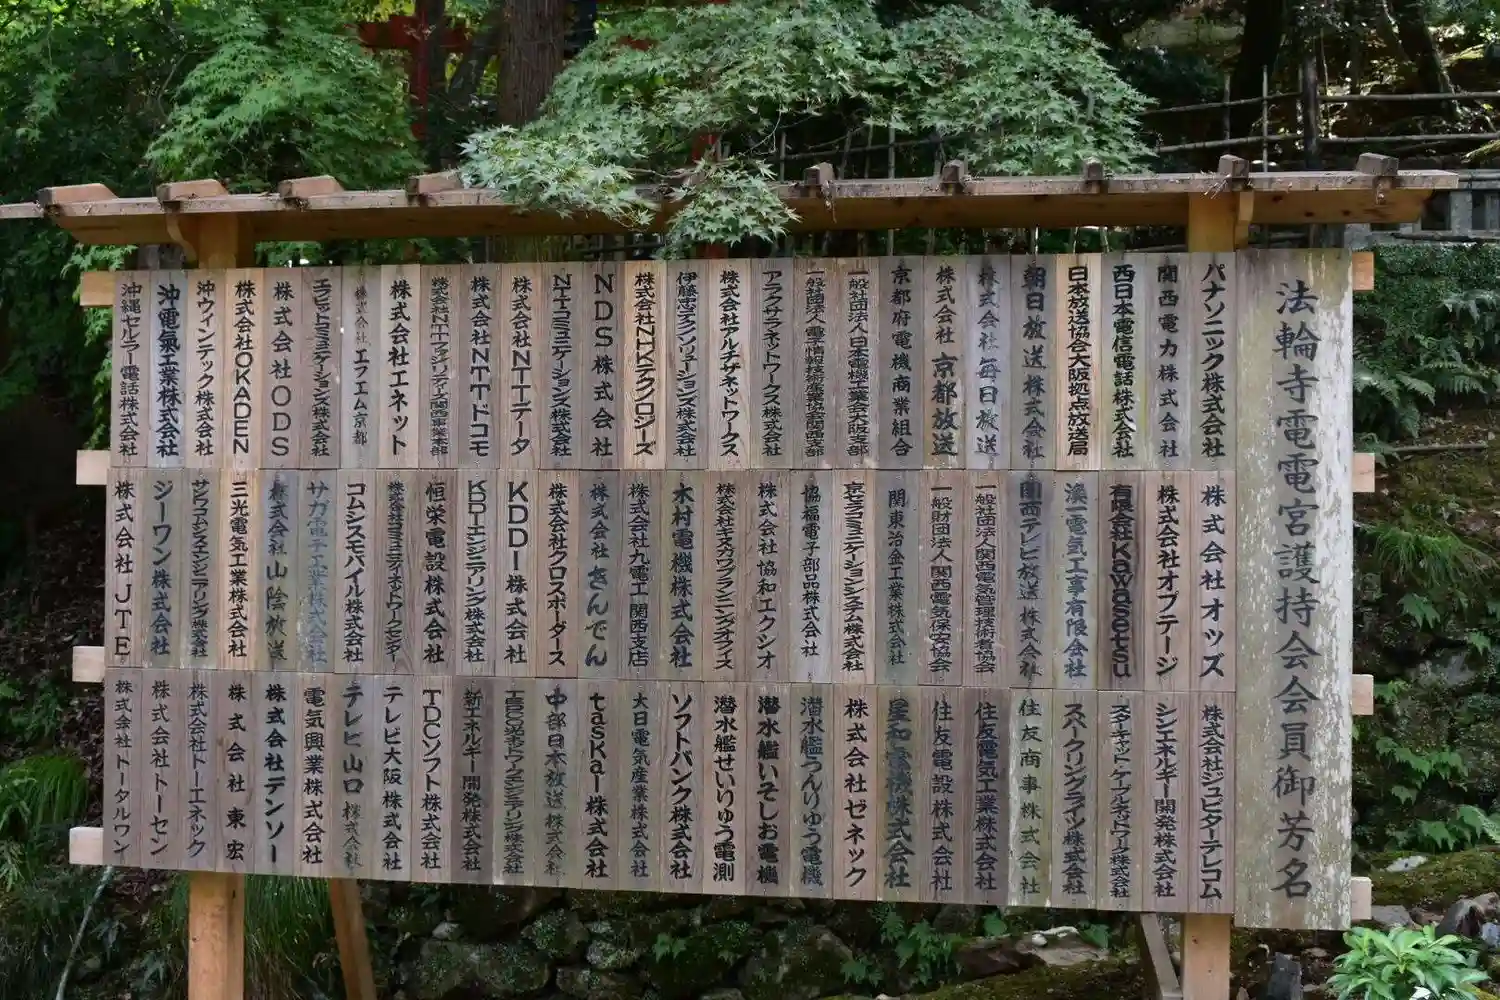 法輪寺電電宮護持会会員御芳名
パナソニック株式会社
関西電力株式会社
西日本電信電話株式会社
日本放送協会大阪拠点放送局
朝日放送株式会社
株式会社毎日放送
株式会社京都放送
京都府電機商業組合
一般社団法人日本電機工業会大阪支部
一般社団法人電子情報技術産業協会関西支部
アラクサラネットワークス株式会社
株式会社アルチザネットワークス
伊藤忠テクノソリューションズ株式会社
株式会社NHKテクノロジーズ
NDS株式会社
NTTコミュニケーションズ株式会社
株式会社NTTデータ
株式会社NTTドコモ
株式会社NTTファシリティーズ関西事業本部
株式会社エネット
株式会社エフエム京都
エヌピットコミュニケーションズ株式会社
株式会社ODS
株式会社OKADEN
沖ウィンテック株式会社
沖電氣工業株式会社
沖縄セルラー電話株式会社
株式会社オッズ
株式会社オプテージ
有限会社Kawasetsu
渙一電気工事有限会社
関西テレビ放送株式会社
一般社団法人関西電気管理技術者協会
一般財団法人関西電気保安協会
関東冶金工業株式会社
京セラコミュニケーションシステム株式会社
協福電子部品株式会社
株式会社協和エクシオ
株式会社キヌガワプランニングオフィス
木村電機株式会社
株式会社九電工関西支店
株式会社きんでん
株式会社クロスボーダーズ
KDDI株式会社
KDDIエンジニアリング株式会社
恒栄電設株式会社
株式会社コミュニティネットワークセンター
コムシスモバイル株式会社
サガ電子工業株式会社
株式会社山陰放送
三光電気工業株式会社
サンコムシスエンジニアリング株式会社
ジーワン株式会社
株式会社JTE
株式会社ジュピターテレコム
シンエネルギー開発株式会社
スターキャット・ケーブルネットワーク株式会社
スパークリングライン株式会社
住友商事株式会社
住友電気工業株式会社
住友電設株式会社
星和電機株式会社
株式会社ゼネック
潜水艦うんりゅう電機
潜水艦いそしお電機
潜水艦せいりゅう電測
ソフトバンク株式会社
大日電気産業株式会社
taskar株式会社
中部日本放送株式会社
新エネルギー開発株式会社
TDCソフト株式会社
テレビ大阪株式会社
テレビ山口株式会社
電気興業株式会社
株式会社デンソー
株式会社東宏
株式会社トーエネック
株式会社トーセン
株式会社トータルワン